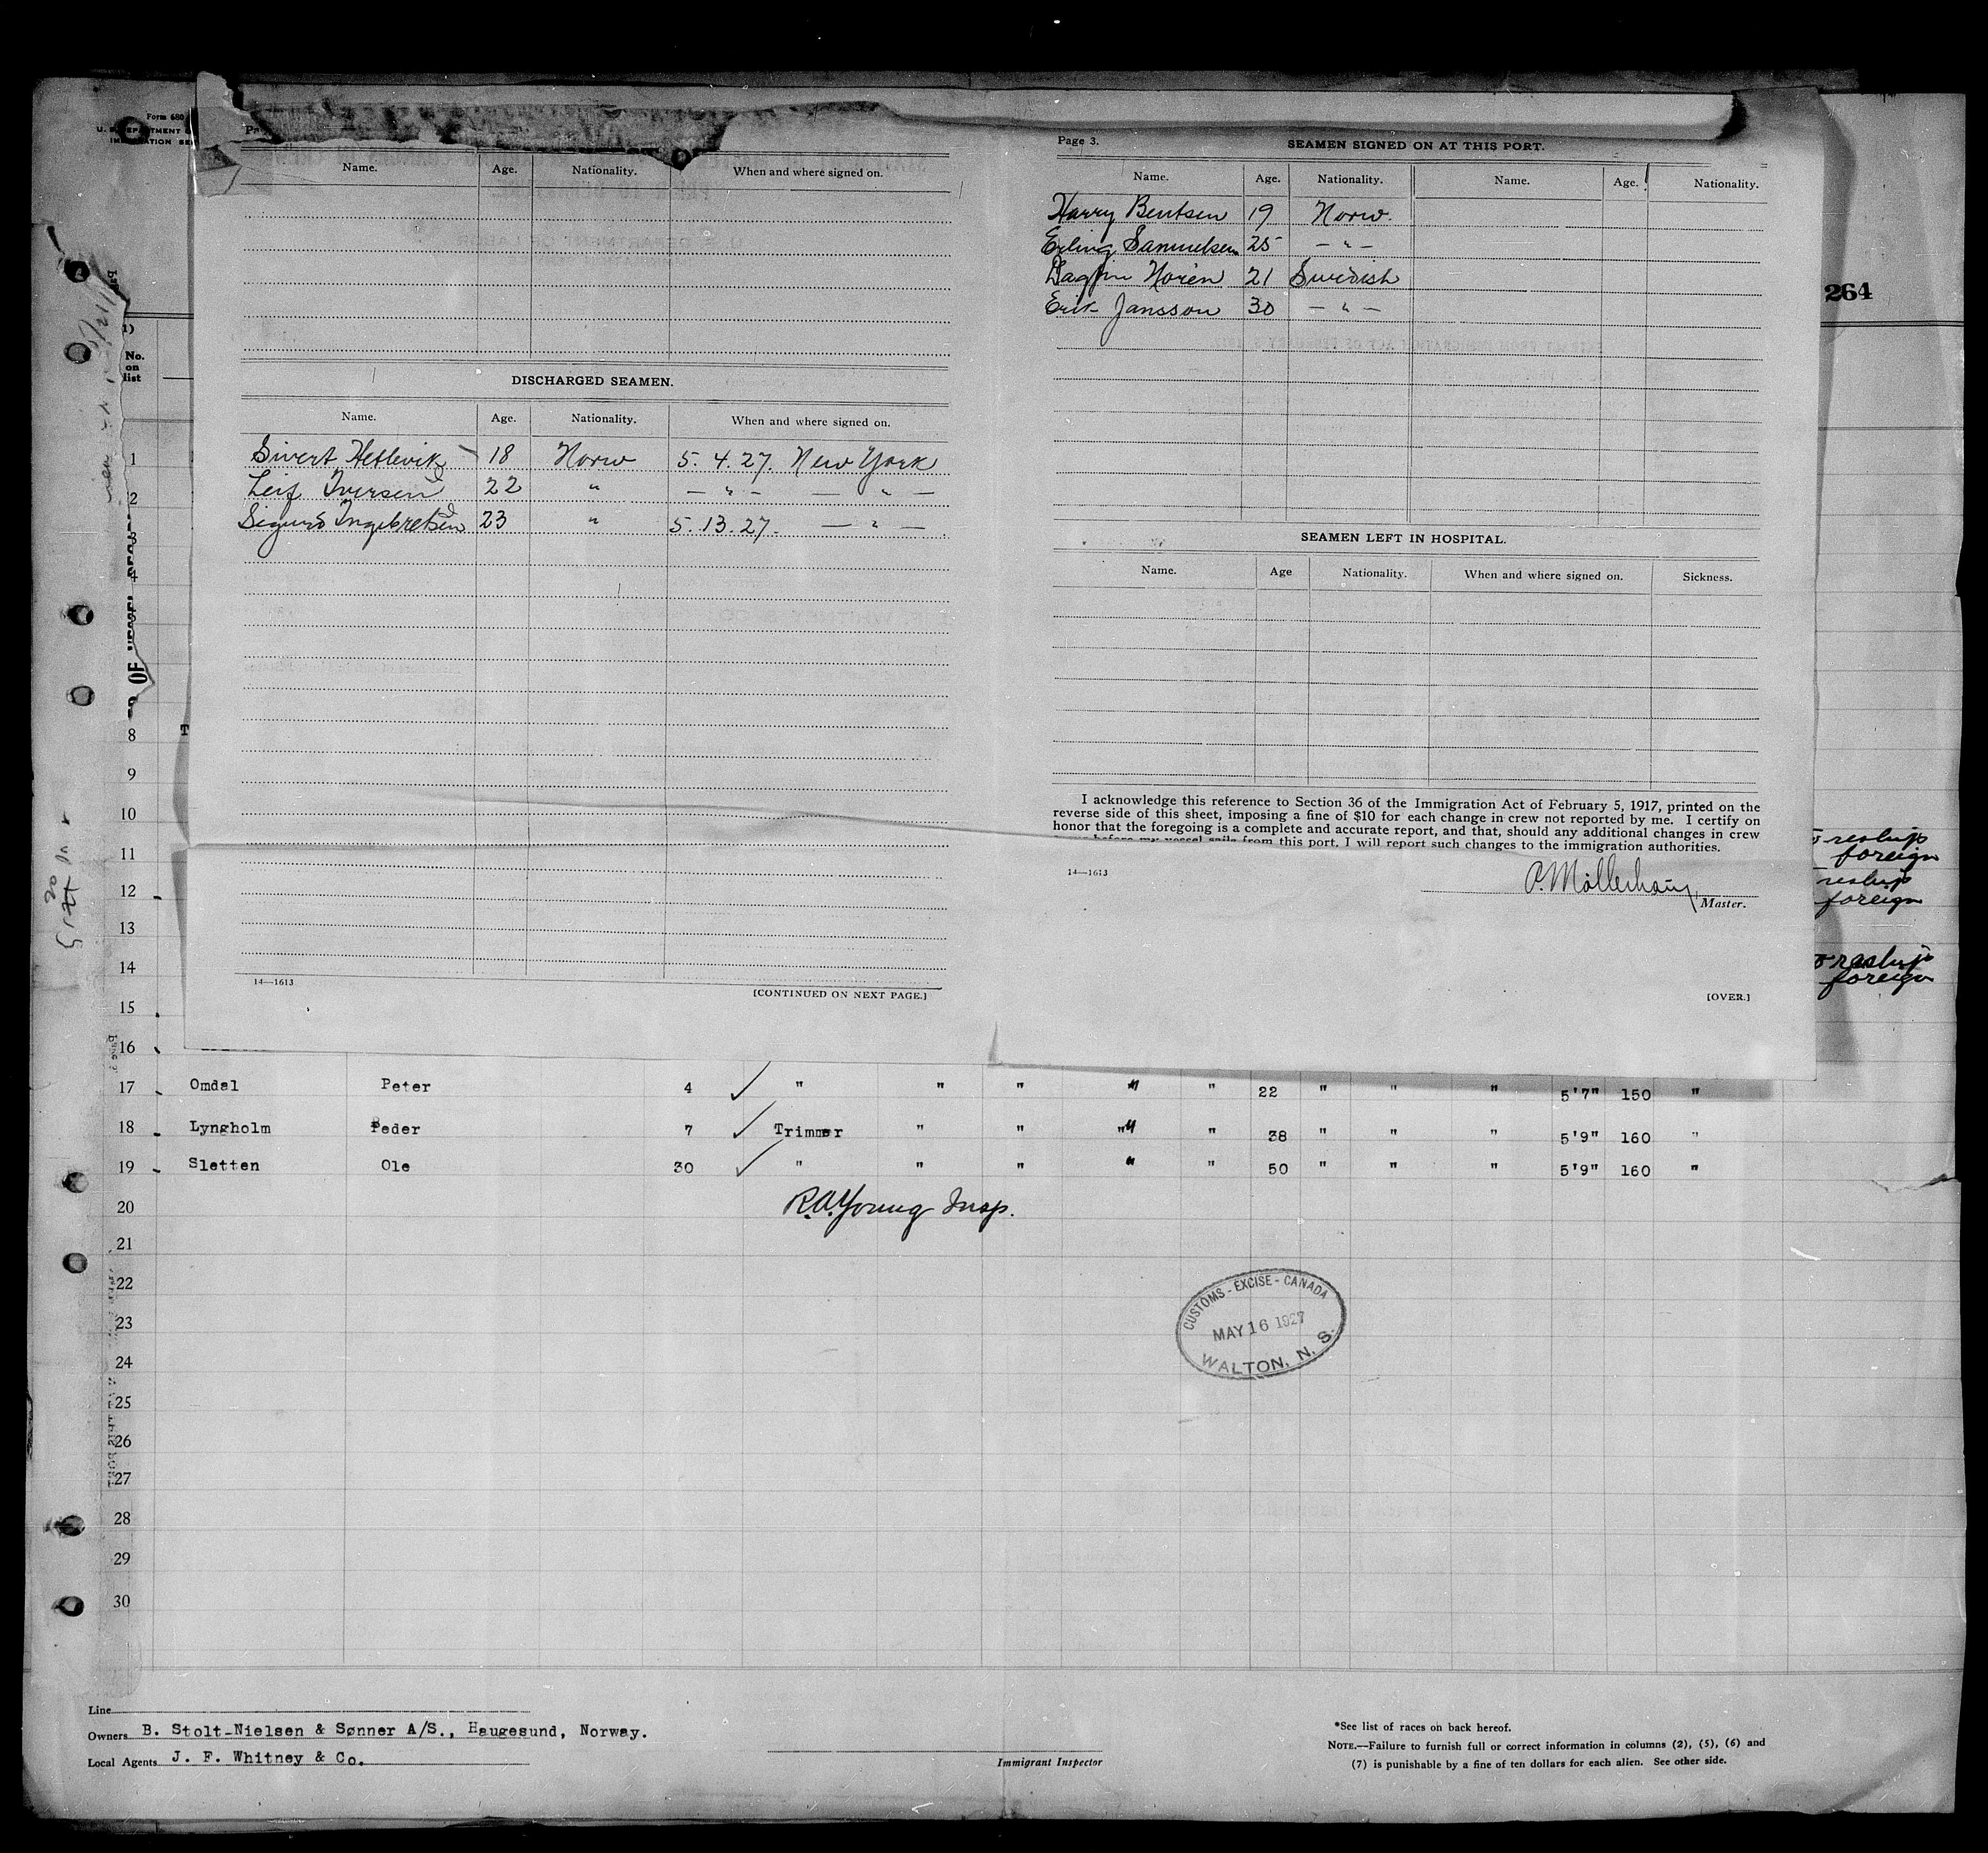 Form 680
U. S. DEPARTMENT
IMMIGRATION
264
No.
on
list
Name. Age. Nationality. When and where signed on.
DISCHARGED SEAMEN.
Name. Age. Nationality. When and where signed on.
Sivert Hetlevik 18 Norw 5. 4. 27. New York
Leif Iversen 22 " — " — — " —
Sigurd Ingebretsen 23 " 5. 13. 27. — " —
14—1613
[CONTINUED ON NEXT PAGE.]
Page 3.
SEAMEN SIGNED ON AT THIS PORT.
Name. Age. Nationality. Name. Age. Nationality.
Harry Bentsen 19 Norw.
Erling Samuelsen 25 — " —
Dagfin Norén 21 Swedish
Erik Jansson 30 — " —
SEAMEN LEFT IN HOSPITAL.
Name. Age Nationality. When and where signed on. Sickness.
I acknowledge this reference to Section 36 of the Immigration Act of February 5, 1917, printed on the
reverse side of this sheet, imposing a fine of $10 for each change in crew not reported by me. I certify on
honor that the foregoing is a complete and accurate report, and that, should any additional changes in crew
before my vessel sails from this port, I will report such changes to the immigration authorities.
14—1613
Master.
[OVER.]
reship
foreign
reship
foreign
reship
foreign
1
2
3
4
8
9
10
11
12
13
14
15
16
17 Omdal Peter 4 ✓ " " " " " 22 " " " 5'7" 150 "
18 Lyngholm Peder 7 ✓ Trimmer " " " " 38 " " " 5'9" 160 "
19 Sletten Ole 30 ✓ " " " " " 50 " " " 5'9" 160 "
20 R.A. Young Insp.
21
22
23
24
25
26
27
28
29
30
CUSTOMS - EXCISE - CANADA
MAY 16 1927
WALTON, N. S.
Line
Owners B. Stolt-Nielsen & Sønner A/S., Haugesund, Norway.
Local Agents J. F. Whitney & Co.
Immigrant Inspector
*See list of races on back hereof.
NOTE.—Failure to furnish full or correct information in columns (2), (5), (6) and
(7) is punishable by a fine of ten dollars for each alien. See other side.